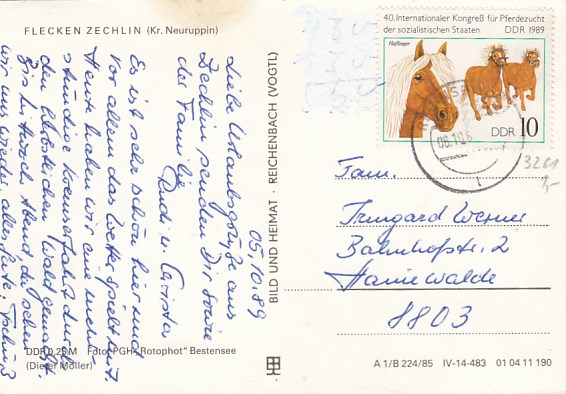 FLECKEN ZECHLIN (Kr. Neuruppin)
05.10.89
Liebe Urlaubsgrüße aus
Zechlin senden Dir sowie
der Familie
Rudi u. Christa
Es ist sehr schön hier und
vor allem das Wetter spielt mit.
Heute haben wir eine mehr-
stündige Kremserfahrt durch
den herbstlichen Wald gemacht.
Bis Mittwoch Abend da sehen
wir uns wieder, alles Gute, Tschüß
DDR 0,25 M Foto: PGH „Rotophot" Bestensee
(Dieter Möller)
BILD UND HEIMAT · REICHENBACH (VOGTL)
40. Internationaler Kongreß für Pferdezucht
der sozialistischen Staaten DDR 1989
Haflinger
DDR 10
06.10.8
3261
1,-
Fam.
Irmgard Werner
Bahnhofstr. 2
Hainewalde
8803
A 1/B 224/85 IV-14-483 01 04 11 190